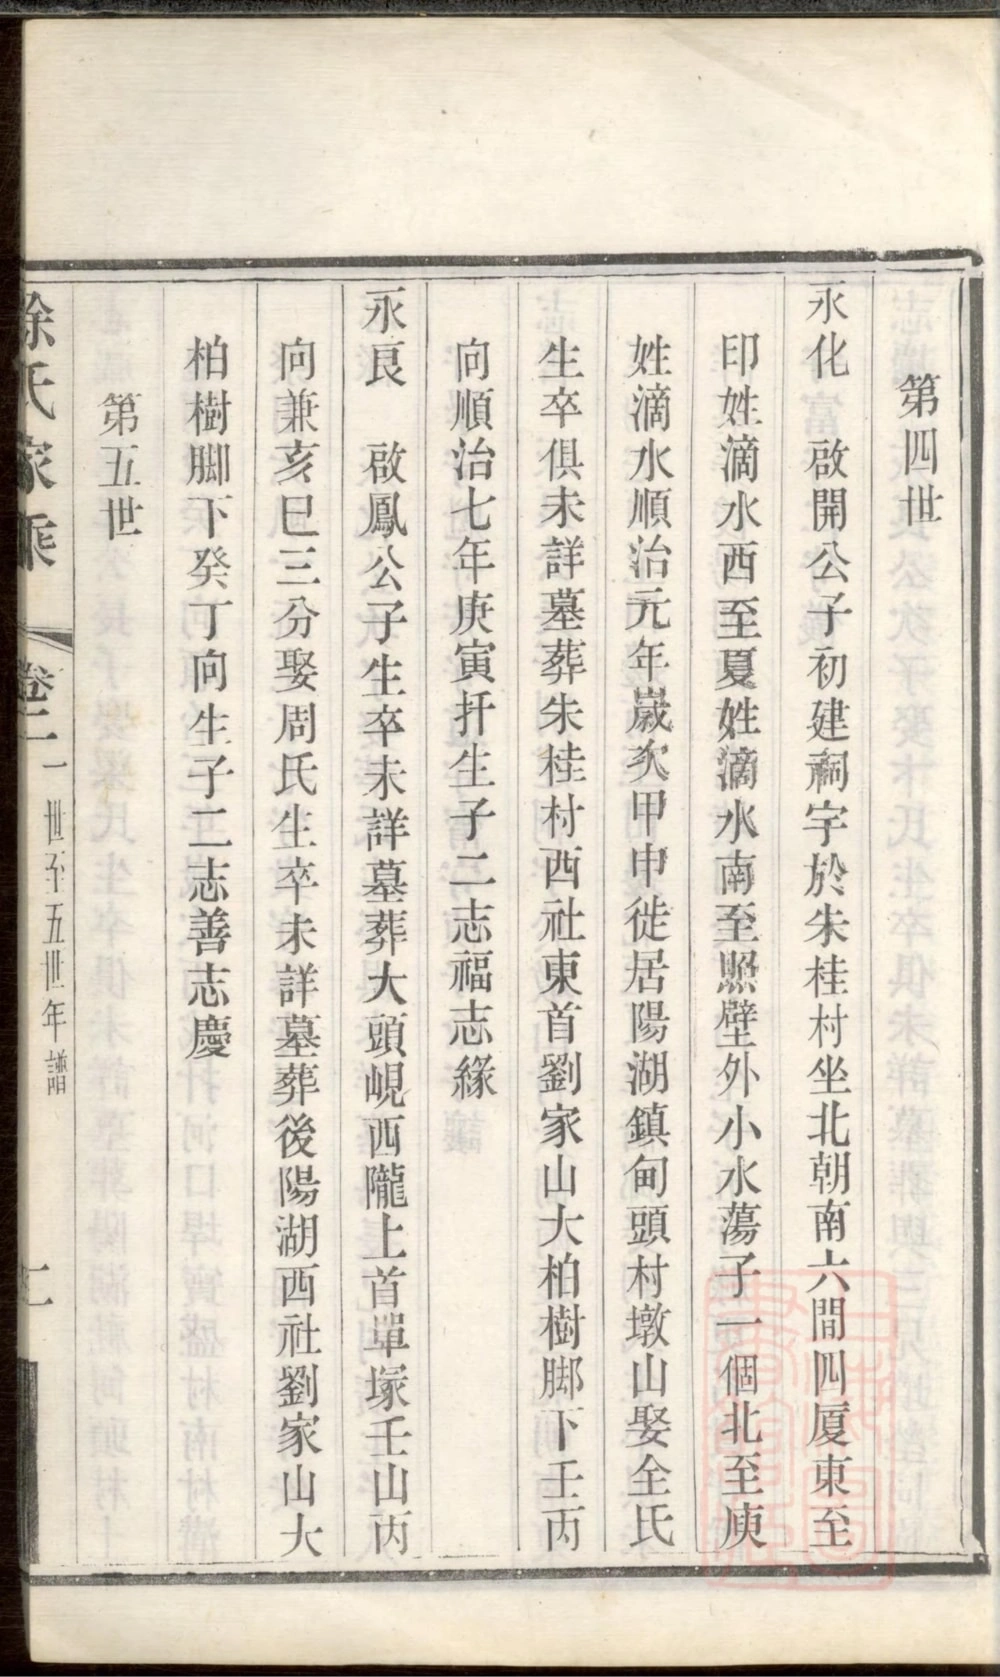 第四世
永化　啟開公子初建祠宇於朱桂村坐北朝南六間四厦東至
印姓滴水西至夏姓滴水南至照壁外小水蕩子一個北至庾
姓滴水順治元年歲次甲申徙居陽湖鎮甸頭村墩山娶全氏
生卒俱未詳墓葬朱桂村西社東首劉家山大柏樹脚下壬丙
向順治七年庚寅扦生子二志福志緣
永良　啟鳳公子生卒未詳墓葬大頭峴西隴上首單塚壬山丙
向兼亥巳三分娶周氏生卒未詳墓葬後陽湖西社劉家山大
柏樹脚下癸丁向生子二志善志慶
第五世
徐氏家乘　卷二　一世至五世年譜